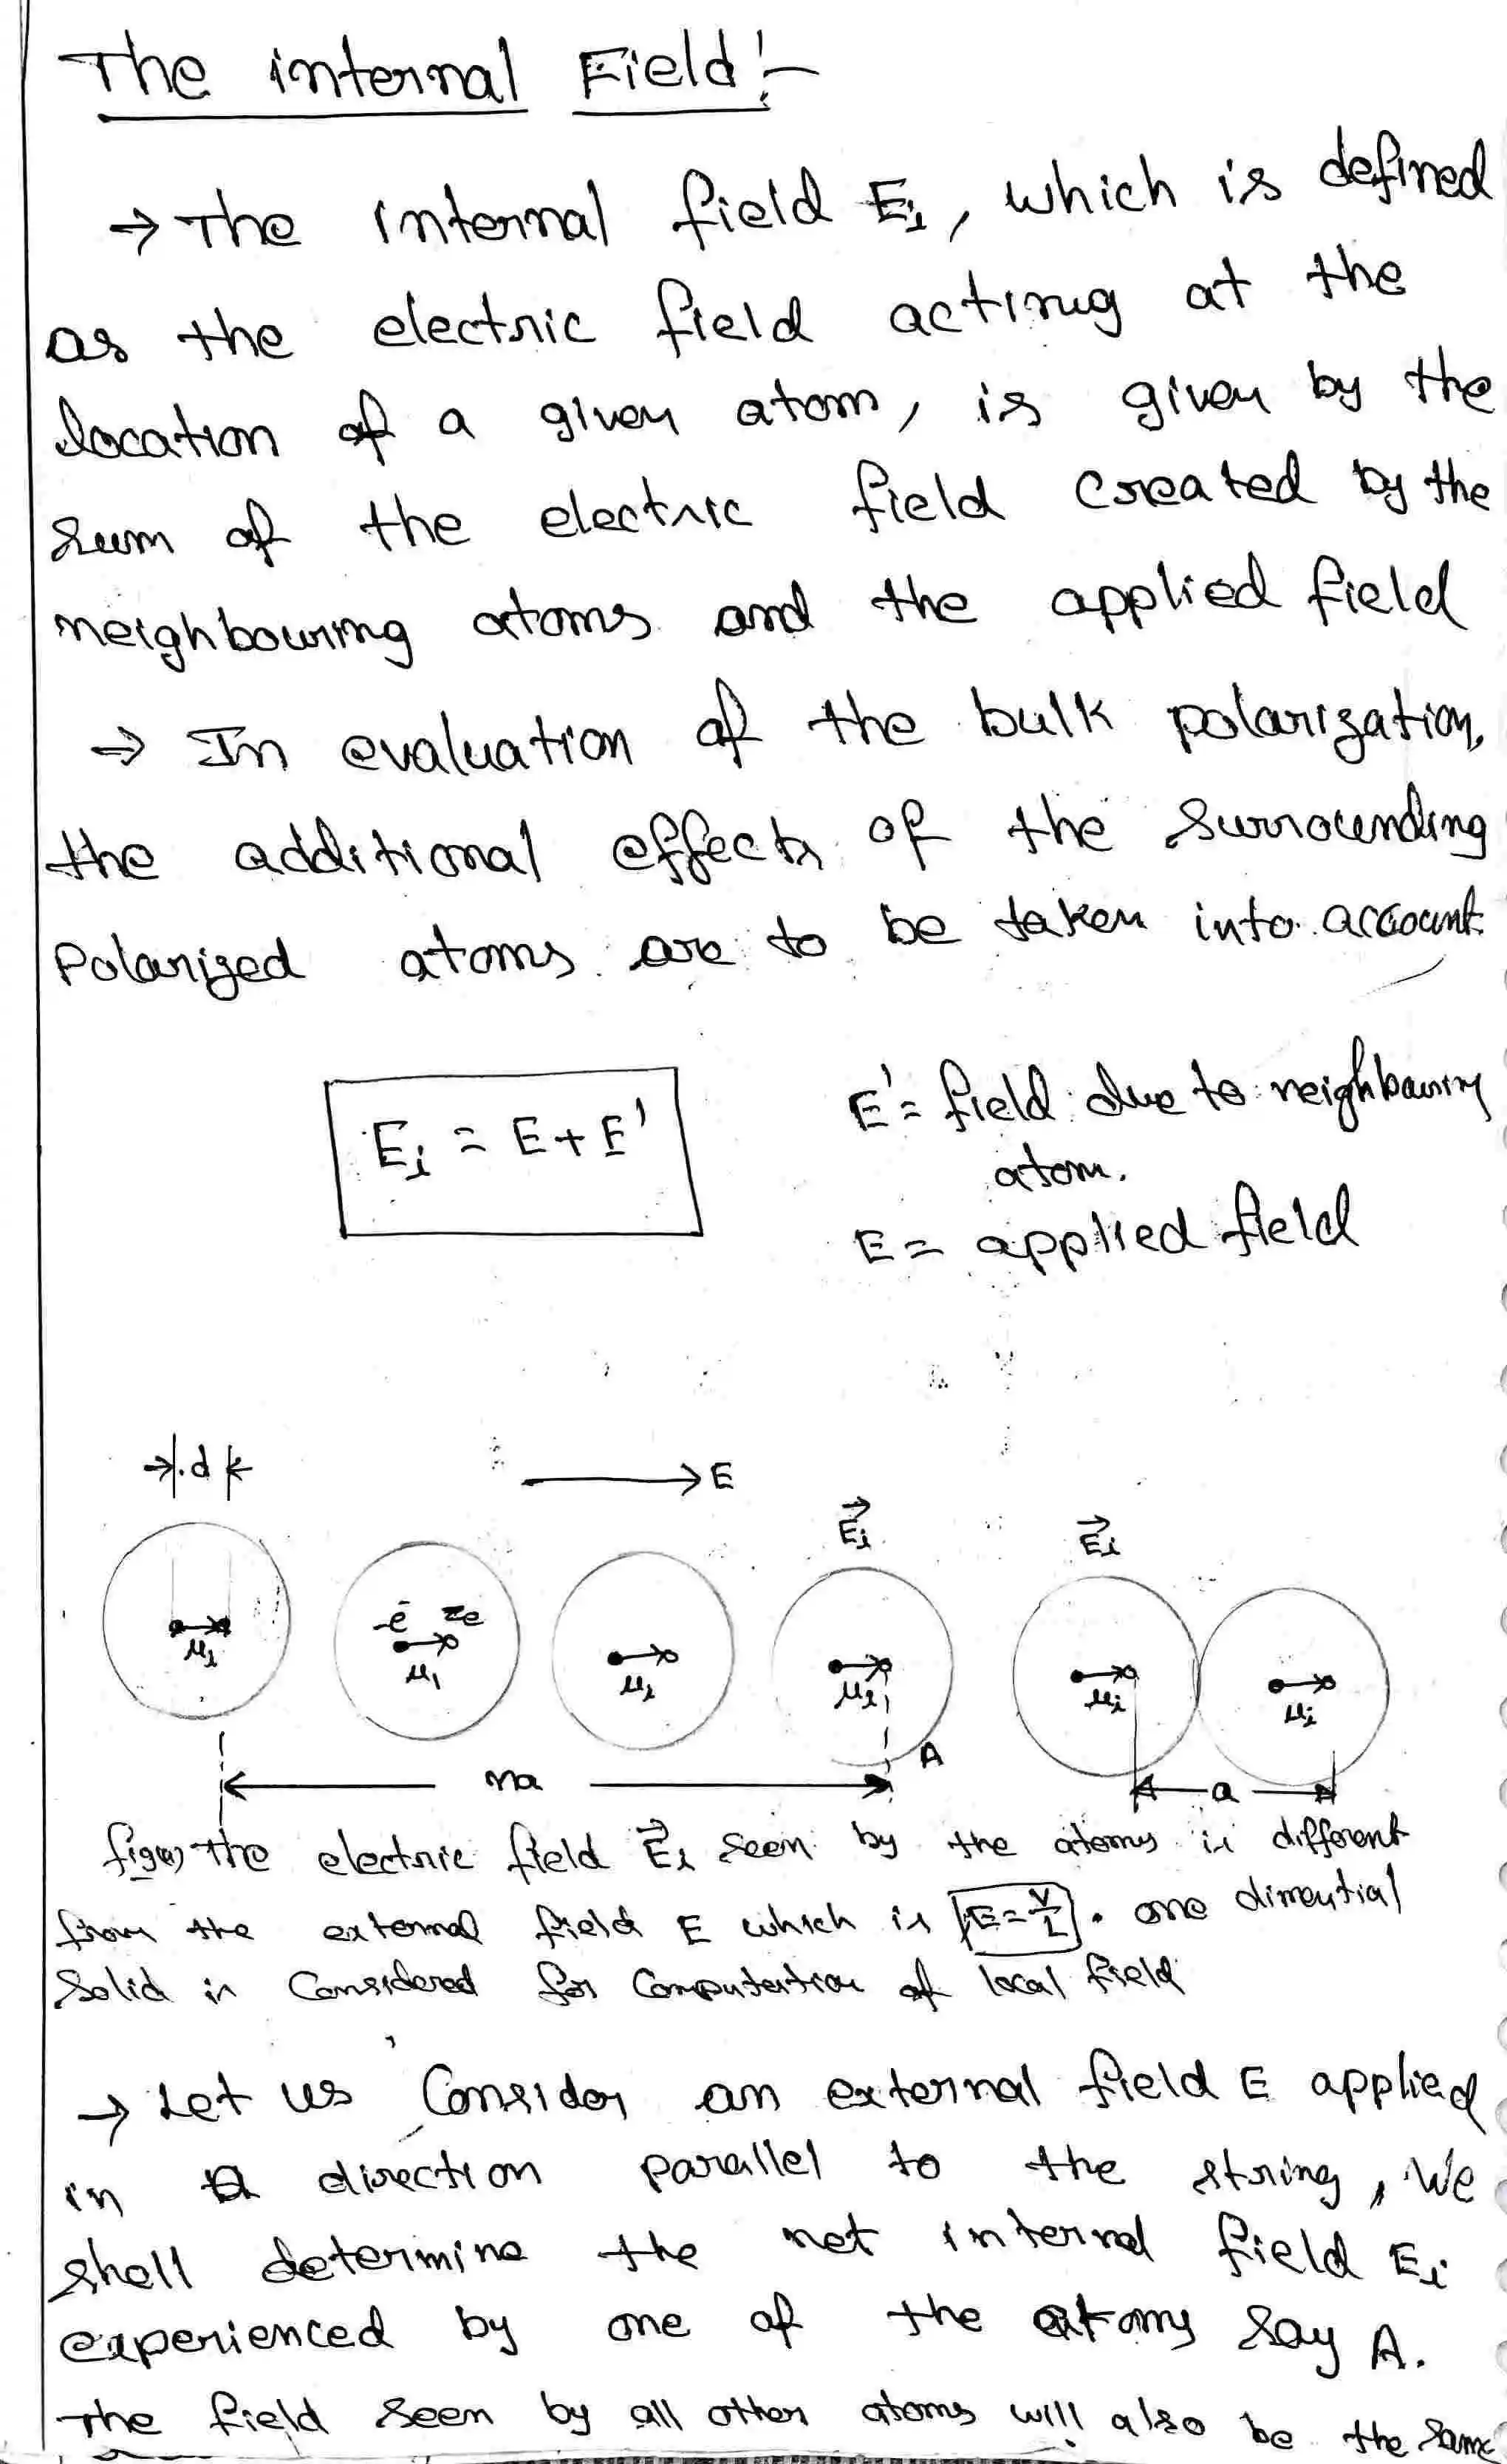 The internal Field:-
→ The internal field Ei, which is defined
as the electric field acting at the
location of a given atom, is given by the
sum of the electric field created by the
neighbouring atoms and the applied field
→ In evaluation of the bulk polarization,
the additional effects of the surrounding
polarized atoms are to be taken into account
Ei = E + E'
E' = field due to neighbouring
atom.
E = applied field
→|d|←
→ E
Ei Ei
-e ze
μi μ1 μi μi μi μi
A
na a
fig(a) the electric field Ei seen by the atoms is different
from the external field E which is E = V/L. one dimential
Solid is Considered for Computation of local field
→ Let us Consider an external field E applied
in a direction parallel to the string, We
shall determine the net internal field Ei
experienced by one of the atoms say A.
The field seen by all other atoms will also be the same